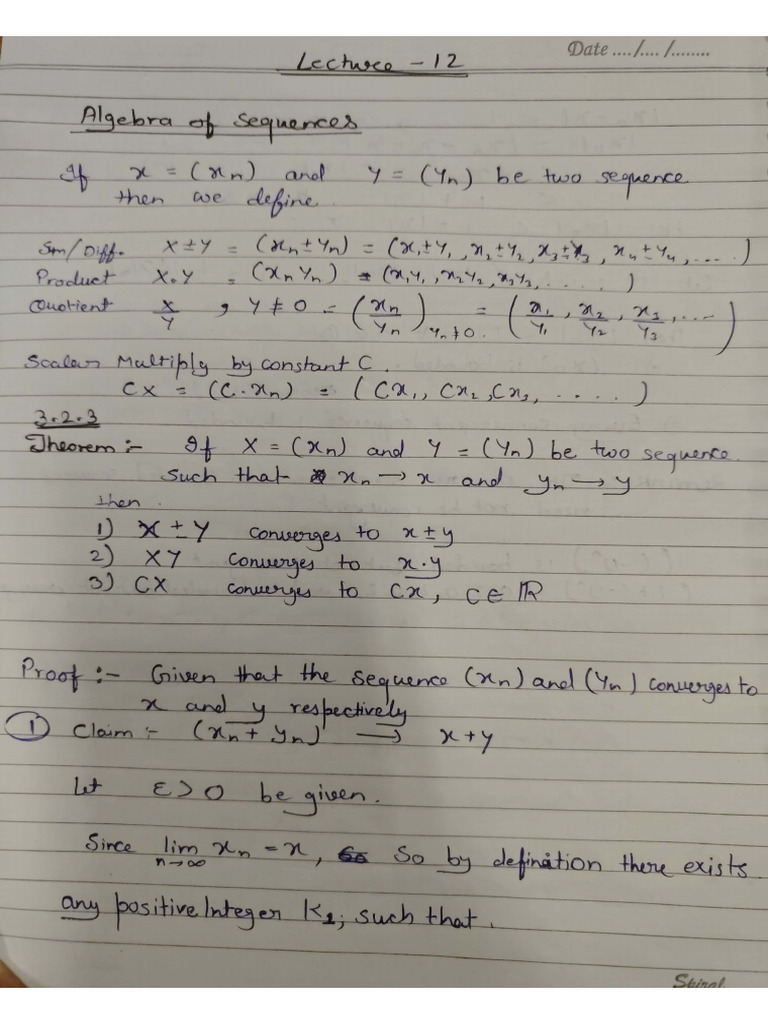 Date ..../..../........
Lecture - 12
Algebra of sequences
If x = (xn) and y = (yn) be two sequence
then we define.
Sm/Diff. X ± Y = (xn ± yn) = (x1 ± y1, x2 ± y2, x3 ± y3, x4 ± y4, ....)
Product X.Y = (xn yn) = (x1y1, x2y2, x3y3, .....)
Quotient X/Y, Y ≠ 0 = (xn/yn) yn≠0. = (x1/y1, x2/y2, x3/y3, ....)
Scalar Multiply by constant C.
CX = (C.xn) = (Cx1, Cx2, Cx3, .....)
3.2.3
Theorem :- If X = (xn) and Y = (yn) be two sequence.
such that xn → x and yn → y
then.
1) X ± Y converges to x ± y
2) XY converges to x.y
3) CX converges to Cx, C ∈ ℝ
Proof :- Given that the sequence (xn) and (yn) converges to
x and y respectively
① Claim :- (xn + yn) → x + y
Let ε > 0 be given.
Since lim n→∞ xn = x, So by definition there exists
any positive Integer K1, such that.